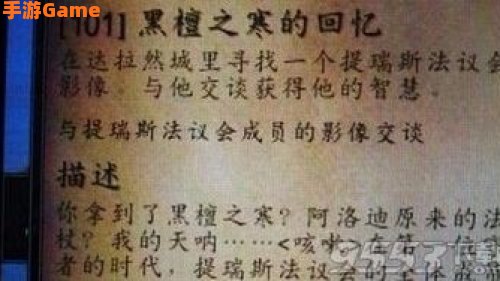 手游Game
[101] 黑檀之寒的回忆
在达拉然城里寻找一个提瑞斯法议会
影像。与他交谈获得他的智慧。
与提瑞斯法议会成员的影像交谈
描述
你拿到了黑檀之寒？阿洛迪原来的法
杖？我的天呐……<咳嗽>在
者的时代，提瑞斯法议会的全体成员